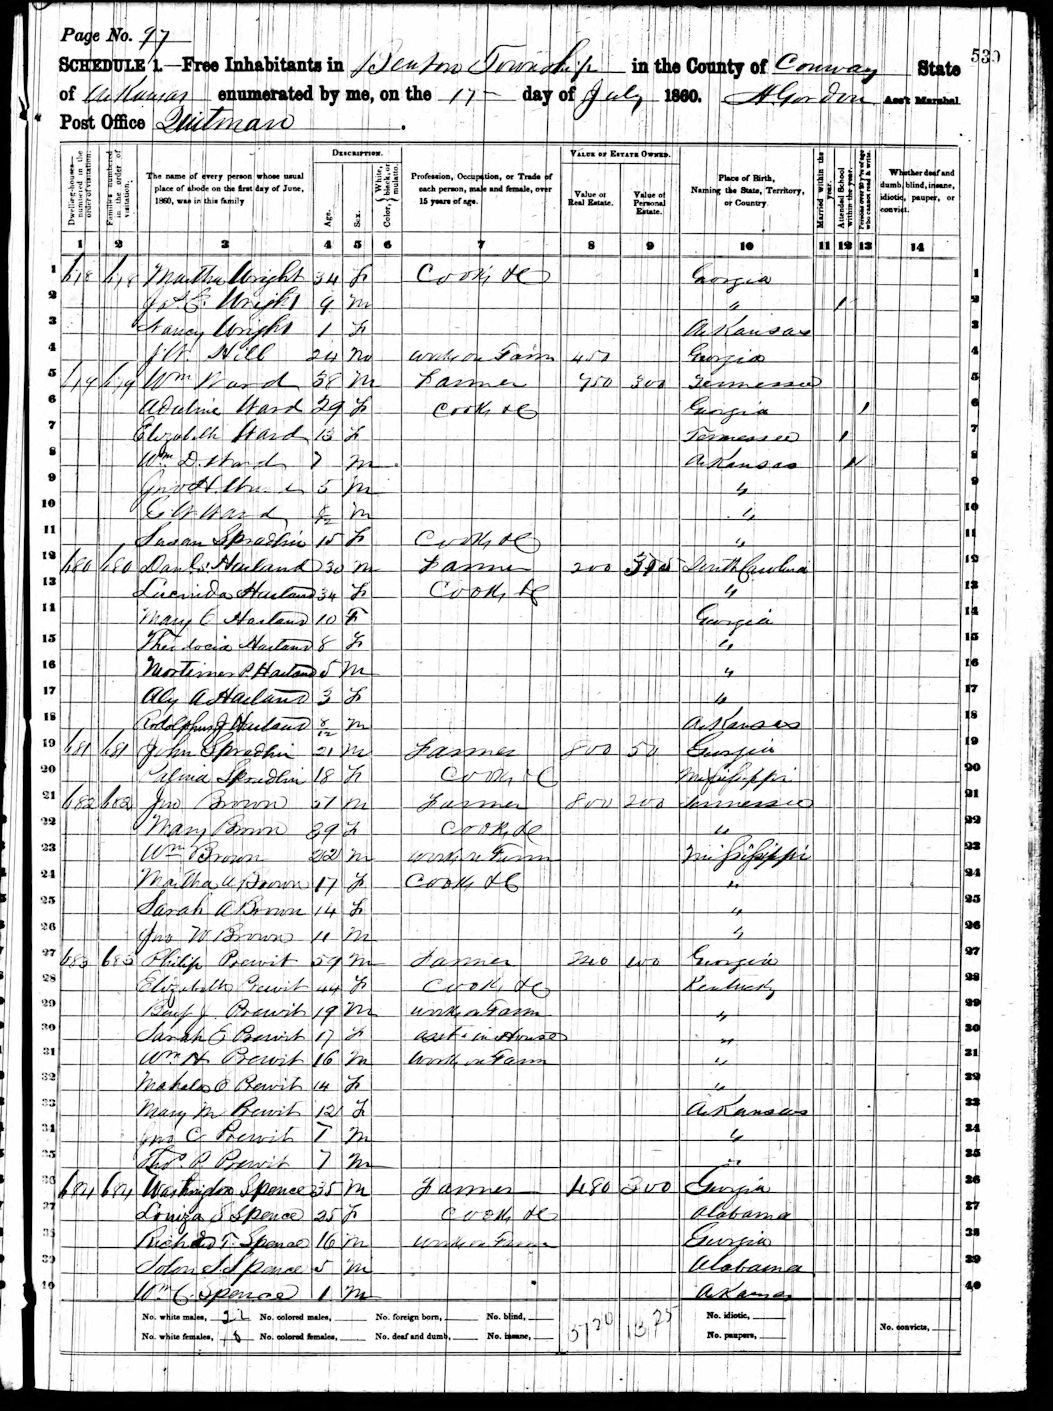 Page No. 97
530
SCHEDULE 1.—Free Inhabitants in Benton Township in the County of Conway State
of Arkansas enumerated by me, on the 17 day of July 1860. Gordon Ass't Marshal
Post Office Quitman.
DESCRIPTION. VALUE OF ESTATE OWNED.
Dwelling-houses—numbered in the order of visitation.
Families numbered in the order of visitation.
The name of every person whose usual place of abode on the first day of June, 1860, was in this family
Age.
Sex.
Color, White, black, or mulatto.
Profession, Occupation, or Trade of each person, male and female, over 15 years of age.
Value of Real Estate.
Value of Personal Estate.
Place of Birth, Naming the State, Territory, or Country.
Married within the year.
Attended School within the year.
Persons over 20 y'rs of age who cannot read & write.
Whether deaf and dumb, blind, insane, idiotic, pauper, or convict.
1 2 3 4 5 6 7 8 9 10 11 12 13 14
1 Martha Wright 34 f Cook, &C Georgia 1
2 Wright 9 m " / 2
3 Nancy Wright 1 f Arkansas 3
4 Hill 24 m work on Farm 450 Georgia 4
5 Wm Ward 38 m Farmer 300 Tennessee 5
6 Adaline Ward 29 f Cook, &C Georgia / 6
7 Elizabeth Ward 13 f Tennessee / 7
8 Wm D. Ward 7 m Arkansas 8
9 Jno H. Ward 5 m " 9
10 Ward 8/12 m " 10
11 Susan Spradlin 15 f Cook, &C " 11
12 680 680 Danl Harland 30 m Farmer 200 South Carolina 12
13 Lucinda Harland 34 f Cook, &C " 13
14 Mary E Harland 10 f Georgia 14
15 Theodocia Harland 8 f " 15
16 Mortimer P Harland 5 m " 16
17 Aly A Harland 3 f " 17
18 Rodolphus J Harland 8/12 m Arkansas 18
19 681 681 John Spradlin 21 m Farmer 800 50 Georgia 19
20 Spradlin 18 f Cook, &C Mississippi 20
21 682 682 Jno Brown 51 m Farmer 800 200 Tennessee 21
22 Mary Brown 39 f Cook, &C " 22
23 Wm Brown 22 m work on Farm Mississippi 23
24 Martha A Brown 17 f Cook, &C " 24
25 Sarah A Brown 14 f " 25
26 Jno W Brown 11 m " 26
27 683 683 Philip Prewit 59 m Farmer 100 Georgia 27
28 Elizabeth Prewit 44 f Cook, &C Kentucky 28
29 Benj J. Prewit 19 m work on Farm " 29
30 Sarah E Prewit 17 f asst in House " 30
31 Wm H Prewit 16 m work on Farm " 31
32 Mahala Prewit 14 f " 32
33 Mary M Prewit 12 f Arkansas 33
34 Jno C Prewit 7 m " 34
35 Thos. P. Prewit 7 m " 35
36 684 684 Washington Spence 35 m Farmer 480 300 Georgia 36
37 Louiza S Spence 25 f Cook, &C Alabama 37
38 Richard T. Spence 16 m work on Farm Georgia 38
39 Solon S. Spence 5 m Alabama 39
40 Wm C. Spence 1 m Arkansas 40
No. white males, 22 No. colored males, No. foreign born, No. blind, No. idiotic,
No. white females, 18 No. colored females, No. deaf and dumb, No. insane, No. paupers, No. convicts,